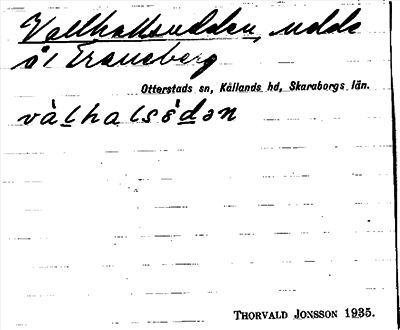 Vallhallsudden, udde
å Traneberg
Otterstads sn, Kållands hd, Skaraborgs län.
vàlhalsùdən
THORVALD JONSSON 1935.